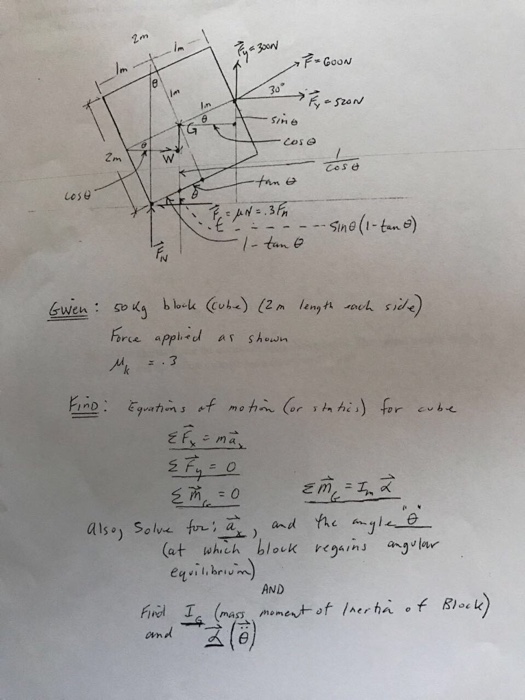 2m
1m
1m
F⃗y = 300N
F⃗ = 600N
30°
F⃗x = 520N
θ
1m
1m
θ
G
sin θ
cos θ
W⃗
θ
2m
1/cos θ
tan θ
cos θ
θ
F⃗f = μN = .3Fn
sin θ (1 - tan θ)
1 - tan θ
F⃗N
Given: 50 Kg block (cube) (2m length each side)
Force applied as shown
μk = .3
FIND: Equations of motion (or statics) for cube
ΣF⃗x = ma⃗x
ΣF⃗y = 0
Σm⃗G = 0 Σm⃗G = Im α⃗
also, Solve for: a⃗x, and the angle "θ"
(at which block regains angular
equilibrium)
AND
Find IG (mass moment of Inertia of Block)
and α⃗ (θ̈)